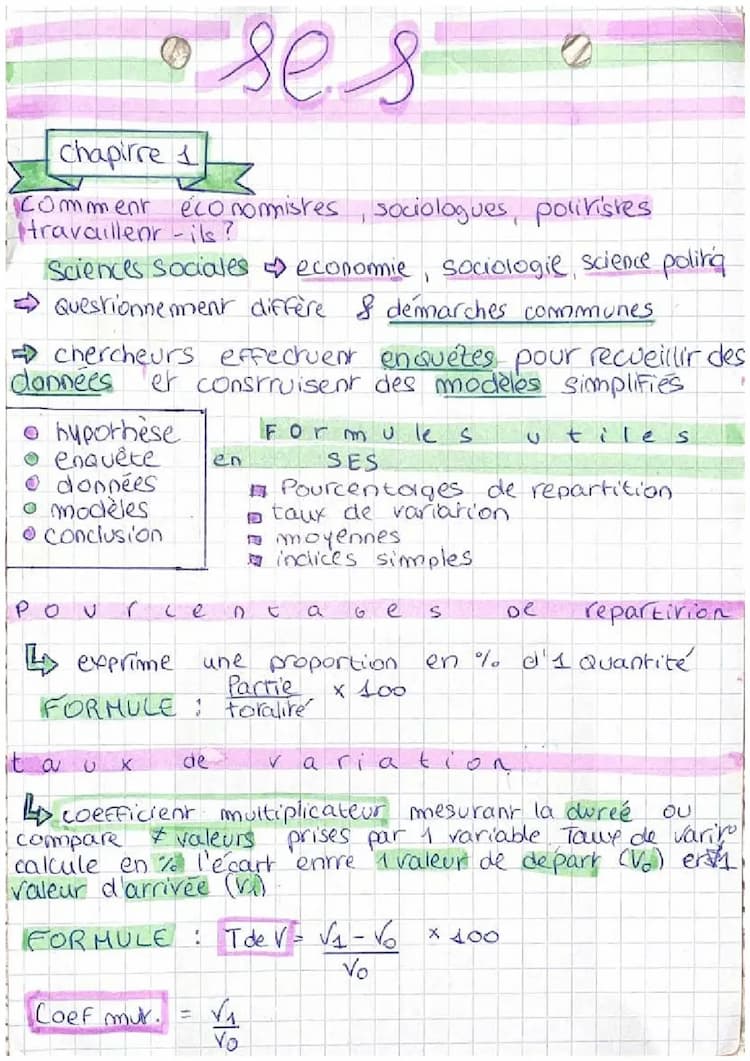 ses
Chapitre 1
Comment économistes, sociologues, politistes
travaillent-ils?
Sciences Sociales ⇨ economie, sociologie, science politiq
⇨ Questionnement diffère & démarches communes
⇨ chercheurs effectuent enquêtes pour recueillir des
données et construisent des modèles simplifiés
• hypothèse
• enquête
• données
• modèles
• conclusion
Formules utiles
en SES
▪ Pourcentages de repartition
▪ taux de variation
▪ moyennes
▪ indices simples
Pourcentages de repartition
↳ exprime une proportion en % d'1 quantité
FORMULE : Partie / totalité × 100
taux de variation
↳ coefficient multiplicateur mesurant la dureé ou
compare ≠ valeurs prises par 1 variable Taux de variº
calcule en % l'écart entre 1 valeur de départ (V₀) et 1
valeur d'arrivée (V₁)
FORMULE : T de V = V₁ - V₀ / V₀ × 100
Coef mult. = V₁ / V₀